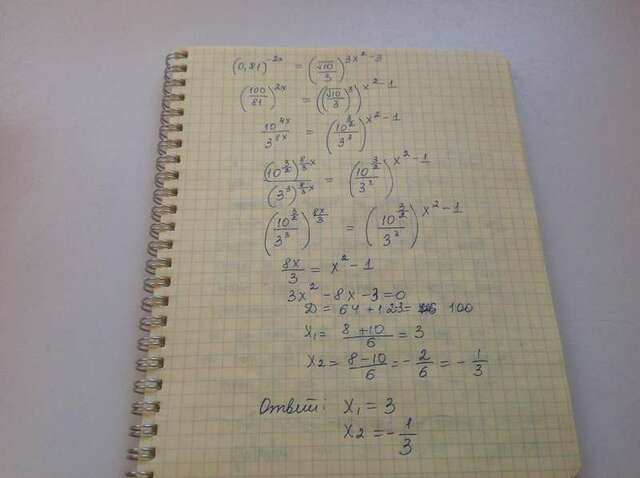 (0,81)^{-2x} = (√10/3)^{3x²-3}
(100/81)^{2x} = ((√10/3)³)^{x²-1}
10^{4x}/3^{8x} = (10^{3/2}/3³)^{x²-1}
(10^{3/2})^{8/3 x}/(3³)^{8/3 x} = (10^{3/2}/3³)^{x²-1}
(10^{3/2}/3³)^{8x/3} = (10^{3/2}/3³)^{x²-1}
8x/3 = x²-1
3x²-8x-3=0
D = 64+123= 100
x₁= 8+10/6 = 3
x₂= 8-10/6 = -2/6 = -1/3
Ответ: x₁=3
x₂ = -1/3